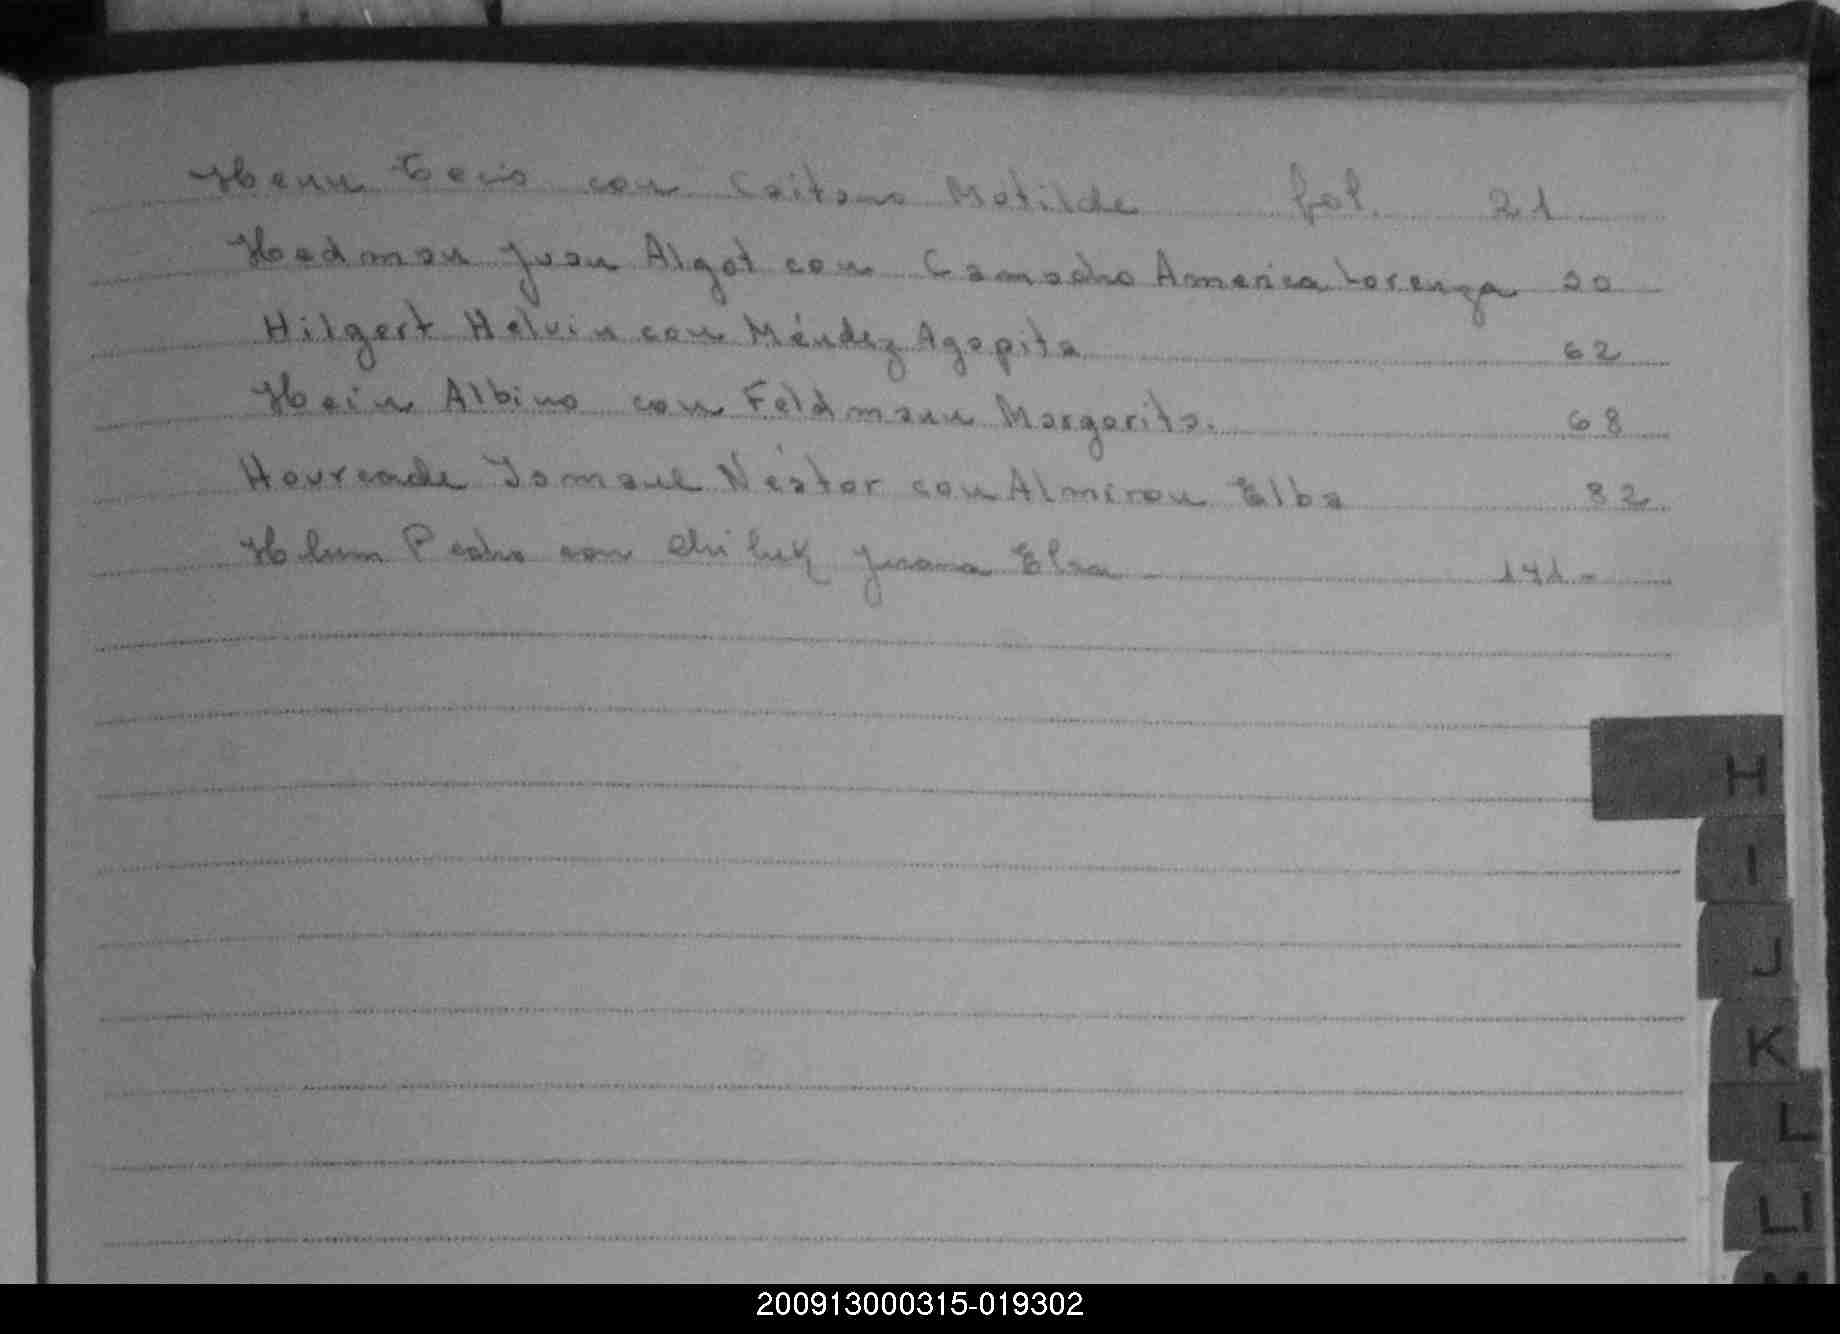 Henn con Caitano Matilde fol. 21
Hedman Juan Algot con Camacho America Lorenza 20
Hilgert Helvin con Méndez Agapita 62
Hein Albino con Feldmann Margarita. 68
Hourcade Ismael Néstor con Almiron Elba 82
Hlum Pedro con Juana Elsa
H
I
J
K
L
Ll
M
200913000315-019302